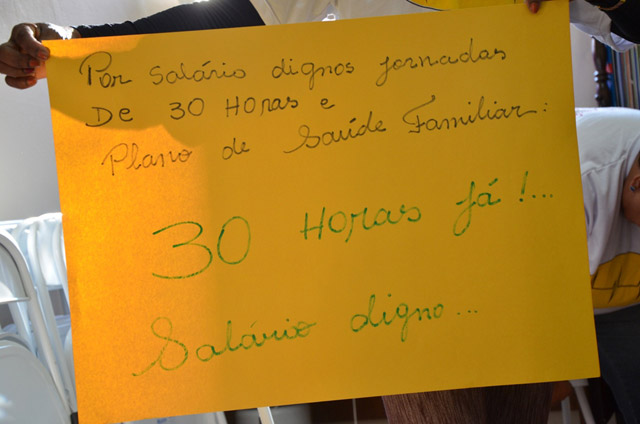 Por salário dignos jornadas
De 30 Horas e
Plano de Saúde Familiar:
30 Horas já!...
Salário digno...